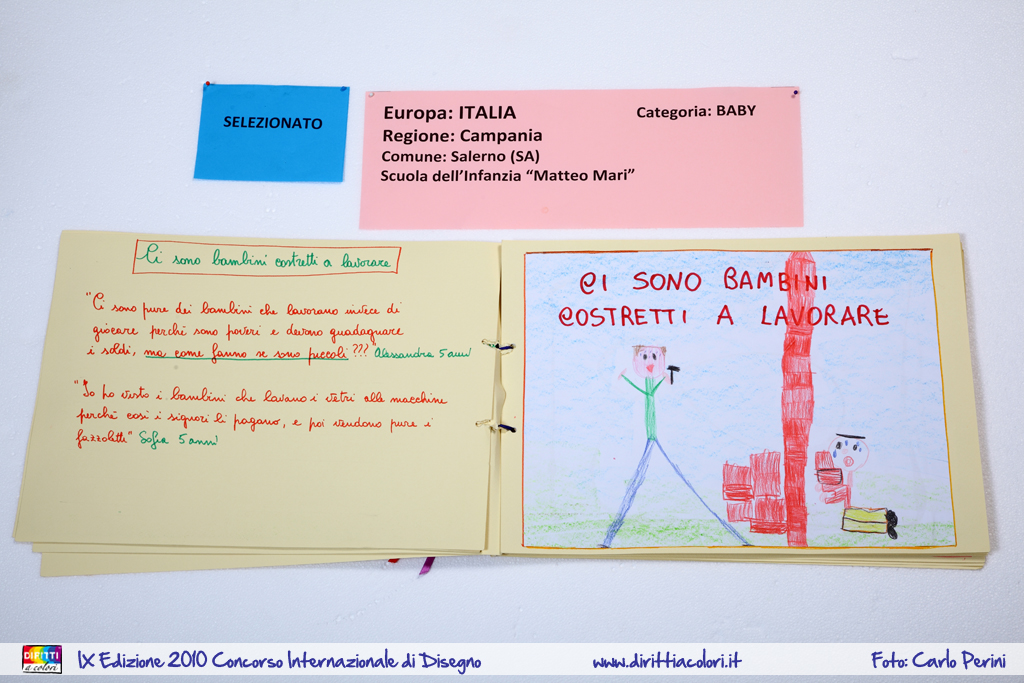 SELEZIONATO
Europa: ITALIA
Categoria: BABY
Regione: Campania
Comune: Salerno (SA)
Scuola dell'Infanzia “Matteo Mari”
Ci sono bambini costretti a lavorare
"Ci sono pure dei bambini che lavorano invece di
giocare perché sono poveri e devono guadagnare
i soldi, ma come fanno se sono piccoli ???" Alessandra 5 anni
"Io ho visto i bambini che lavano i vetri alle macchine
perché così i signori li pagano, e poi vendono pure i
fazzoletti" Sofia 5 anni
CI SONO BAMBINI
COSTRETTI A LAVORARE
DIRITTI
a colori
IX Edizione 2010 Concorso Internazionale di Disegno
www.dirittiacolori.it
Foto: Carlo Perini